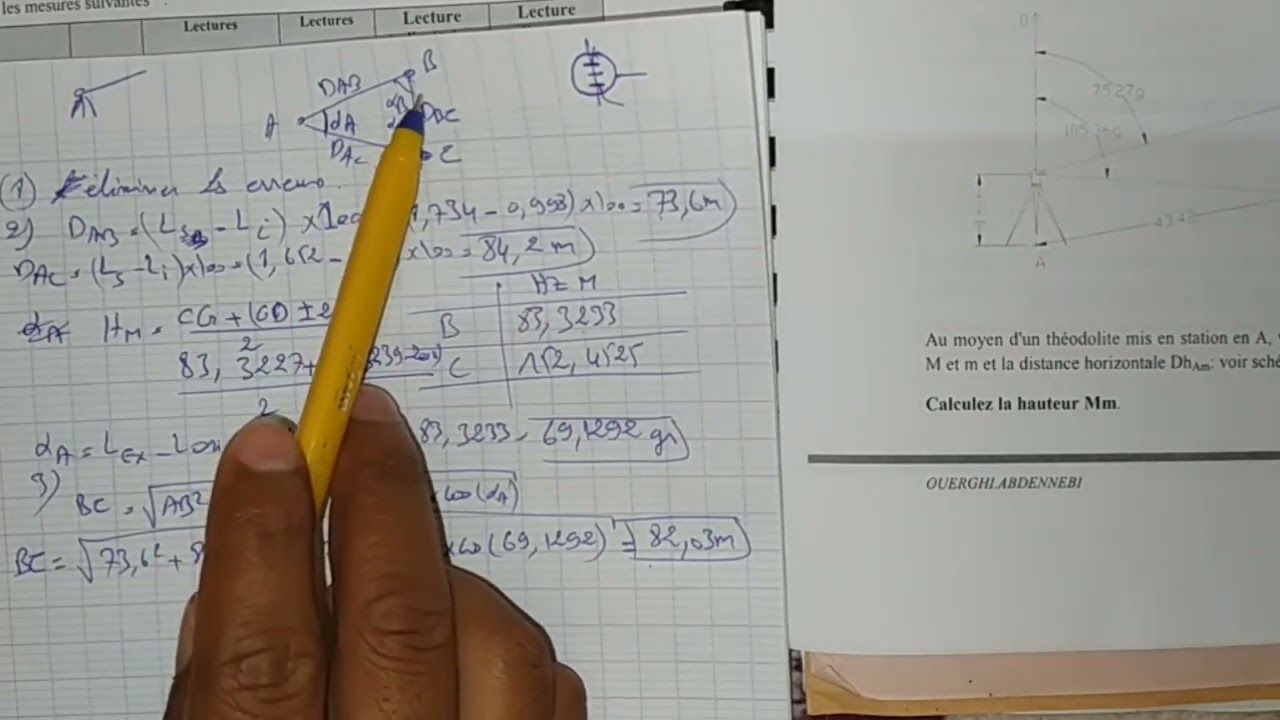 les mesures suivantes
Lectures
Lectures
Lecture
Lecture
B
DAB
A
dA
DBC
DAC
C
(1) éliminer les erreurs.
2) DAB = (Ls - Li) x 100 1,734 - 0,998) x 100 = 73,6m
DAC = (Ls - Li) x 100 = (1,652 - x 100 = 84,2 m
HzM
HM = CG + (CD ±
2
B 83,3233
83,3227+ 239-200)
2
C 152,4525
αA = LEx - 83,3233 = 69,1292 gr
3)
BC = √AB² cos(αA)
BC = √73,6² + x cos(69,1292) = 82,03m
75.27g
105.36g
43.42
A
Au moyen d'un théodolite mis en station en A,
M et m et la distance horizontale DhAm: voir sché
Calculez la hauteur Mm.
OUERGHI.ABDENNEBI